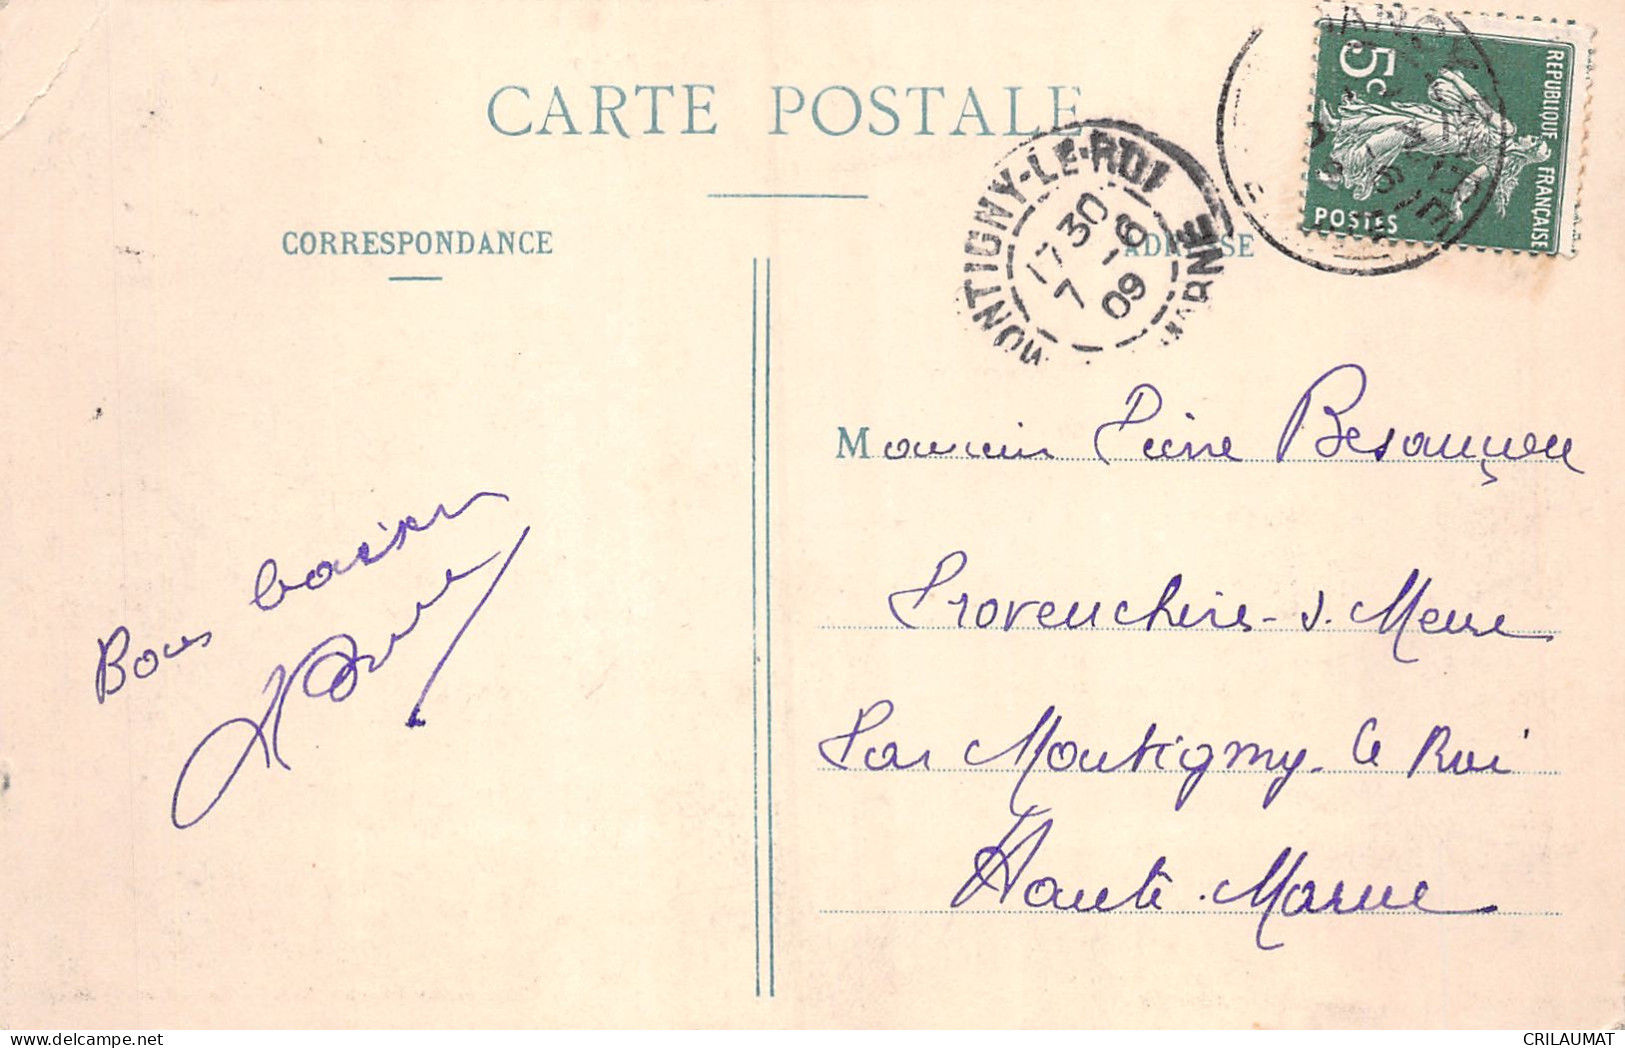 CARTE POSTALE
CORRESPONDANCE
ADRESSE
REPUBLIQUE FRANÇAISE
5c
POSTES
MONTIGNY-LE-ROI
17 30
7 - 6
09
MARNE
Monsieur Pierre Besançon
Provenchère-s. Meuse
Par Montigny-le Roi
Haute-Marne
Bons baisers
CRILAUMAT